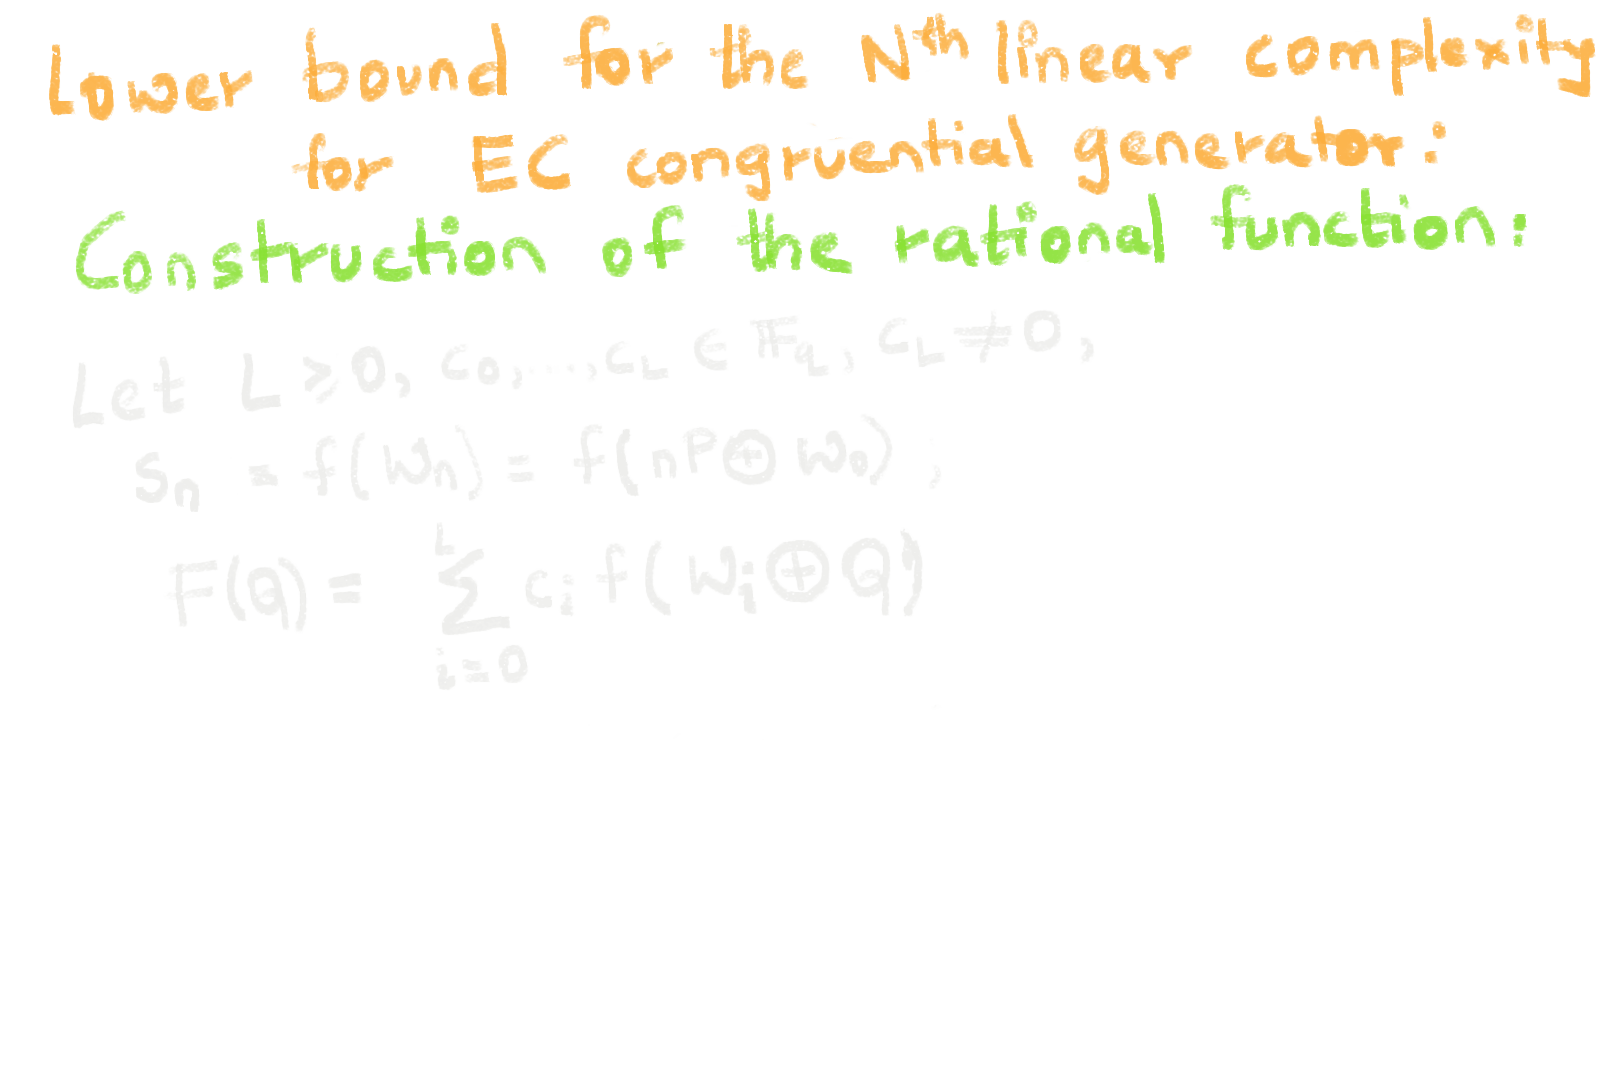 Lower bound for the Nth linear complexity
for EC congruential generator:
Construction of the rational function:
Let L ≥ 0, c₀,...,c_L ∈ 𝔽_q, c_L ≠ 0,
s_n = f(W_n) = f(nP ⊕ W₀),
F(Q) = ∑_{i=0}^{L} c_i f(W_i ⊕ Q)